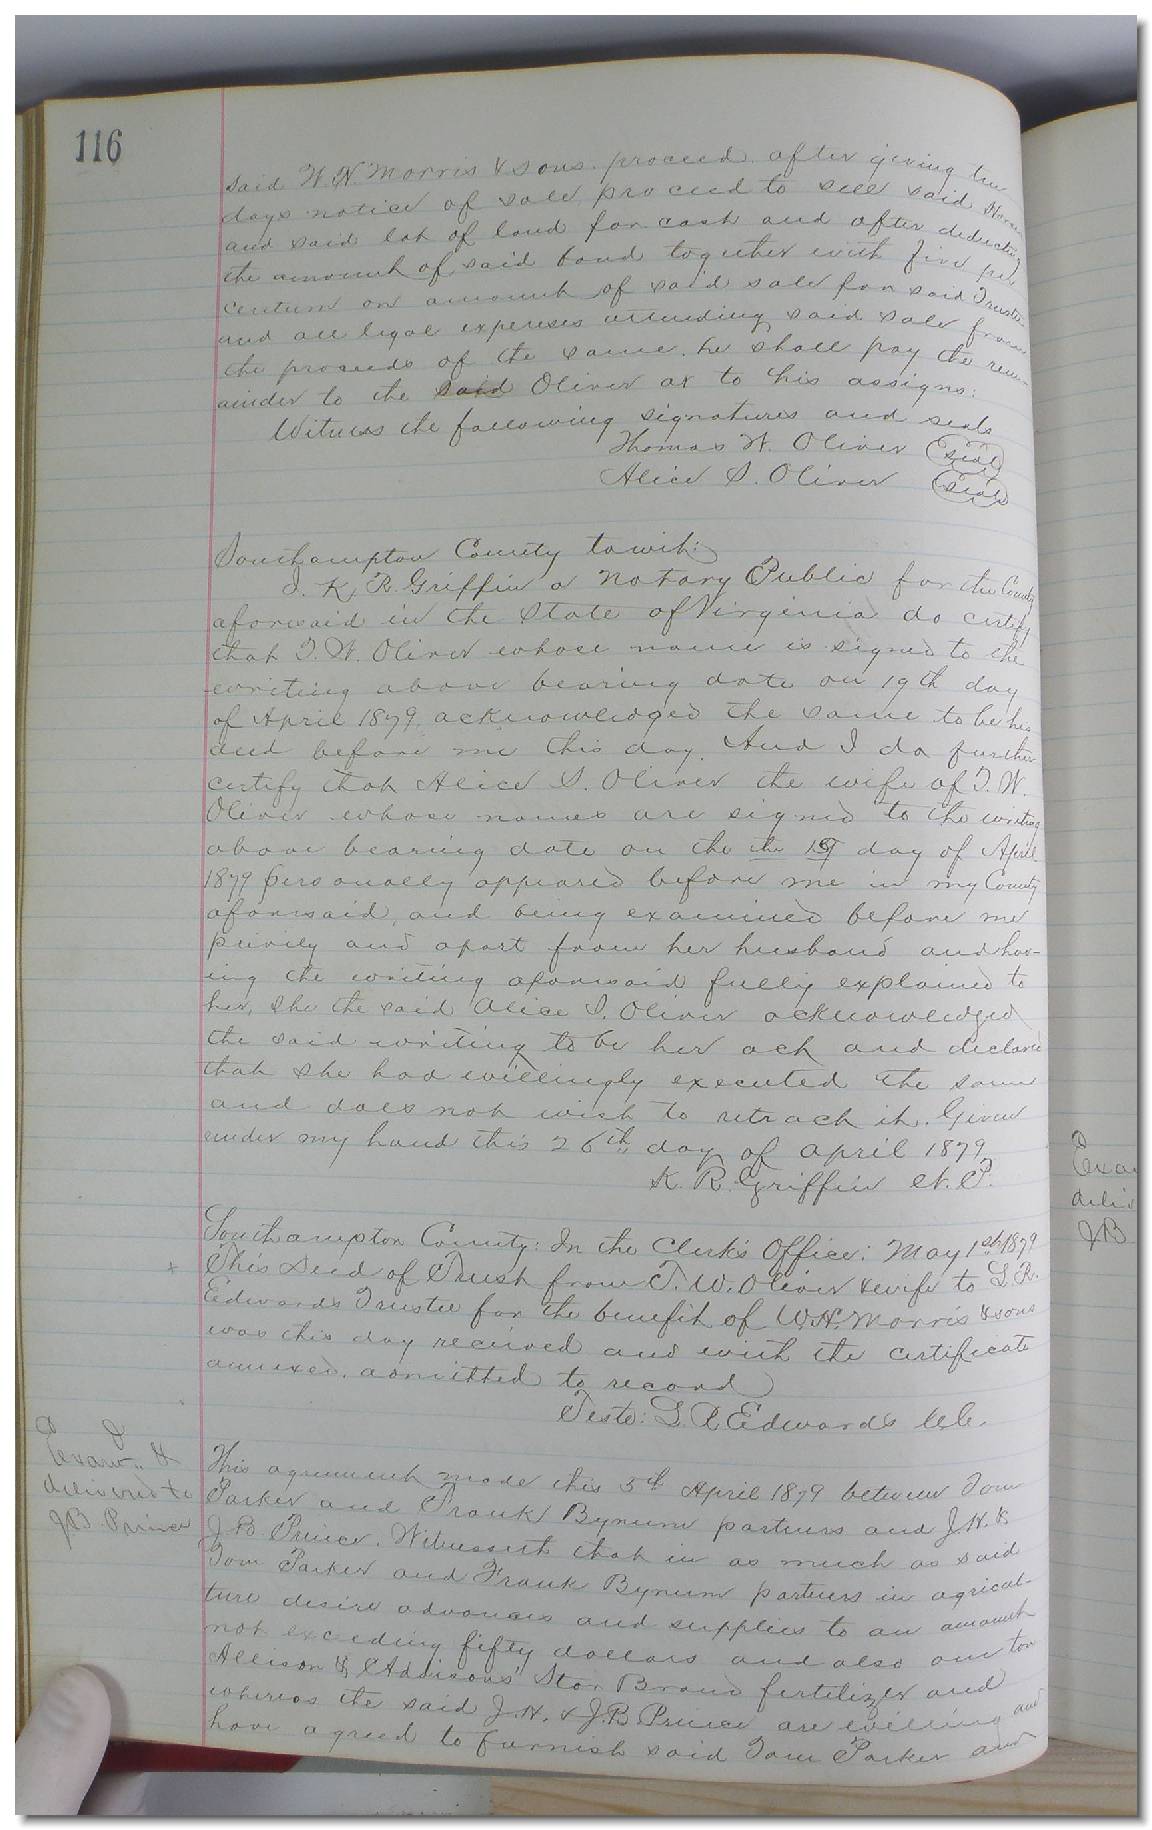 116
said W. H. Morris & sons. proceed. after giving ten
days notice of sale, proceed to sell said Horse
and said lot of land for cash and after deducting
the amount of said bond together with five per
centum on amount of said sale for said Trustee
and all legal expenses attending said sale from
the proceeds of the same. he shall pay the rem-
ainder to the said Oliver or to his assigns:
Witness the following signatures and seals
Thomas W. Oliver (Seal)
Alice S. Oliver (Seal)
Southampton County towit:
I. K. R. Griffin a Notary Public for the County
aforesaid in the State of Virginia do certify
that T. W. Oliver whose name is signed to the
writing above bearing date on 19th day
of April 1879, acknowledged the same to be his
deed before me this day. And I do further
certify that Alice S. Oliver the wife of T. W.
Oliver whose names are signed to the writing
above bearing date on the the 19 day of April
1879 personally appeared before me in my County
aforesaid, and being examined before me
privily and apart from her husband and hav-
ing the writing aforesaid fully explained to
her, she the said Alice S. Oliver acknowledged
the said writing to be her act and declared
that she had willingly executed the same
and does not wish to retract it. Given
under my hand this 26th day of April 1879
K. R. Griffin N. P.
Southampton County: In the Clerk's Office: May 1st 1879
This Deed of Trust from T. W. Oliver & wife to L. R.
Edwards Trustee for the benefit of W. H. Morris & sons
was this day received and with the certificate
annexed, admitted to record
Teste: L. R. Edwards C.C.
Exam. &
delivered to
J.B. Prince
This agreement made this 5th April 1879 between Tom
Parker and Frank Bynum partners and J. H. &
J. B. Prince. Witnesseth that in as much as said
Tom Parker and Frank Bynum partners in agricul-
ture desire advances and supplies to an amount
not exceding fifty dollars and also one ton
Allison & Addisons' Star Brand fertilizer and
whereas the said J. H. & J. B. Prince are willing and
have agreed to furnish said Tom Parker and
Exa
deliv
J.B.